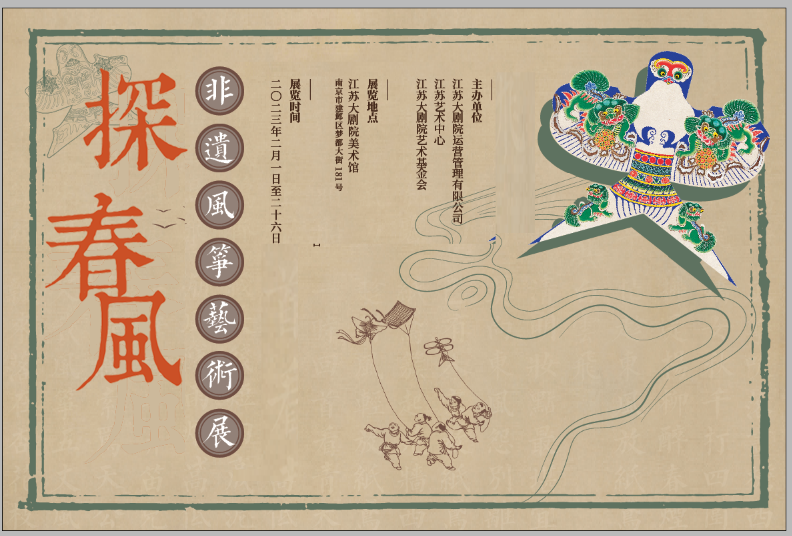 探春風
非遺風箏藝術展
主办单位
江苏大剧院运营管理有限公司
江苏艺术中心
江苏大剧院艺术基金会
展览地点
江苏大剧院美术馆
南京市建邺区梦都大街181号
展览时间
二〇二三年二月一日至二十六日